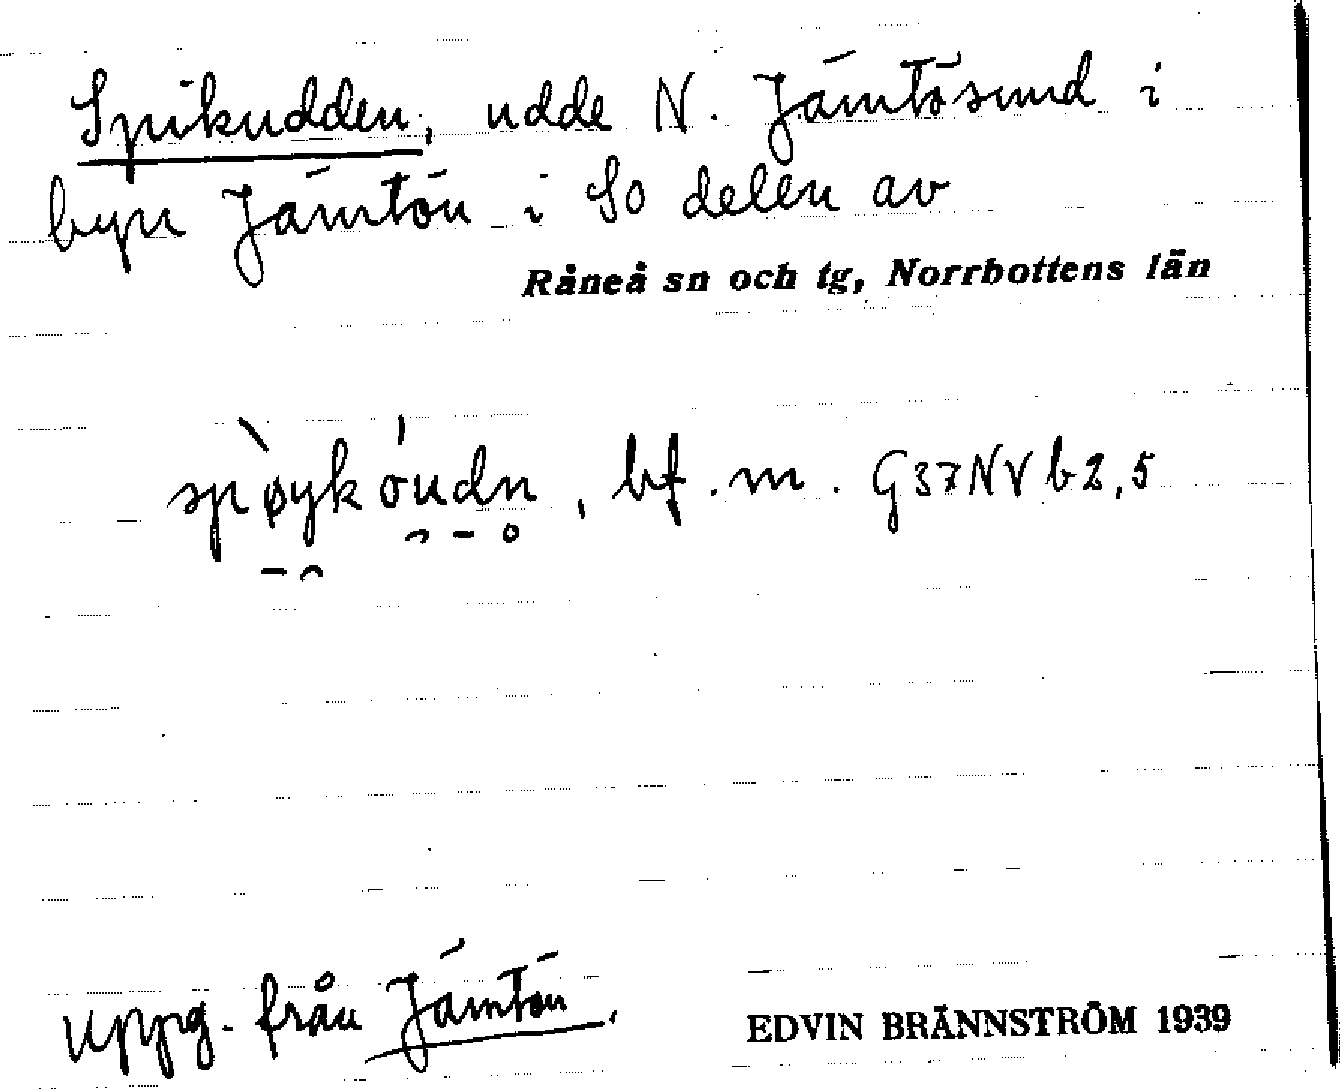 Spikudden, udde N. Jämtösund i
byn Jämtön i So delen av
Råneå sn och tg, Norrbottens län
spøykóudn, bf. m. G37NVb2,5
Uppg. från Jämtön.
EDVIN BRÄNNSTRÖM 1939